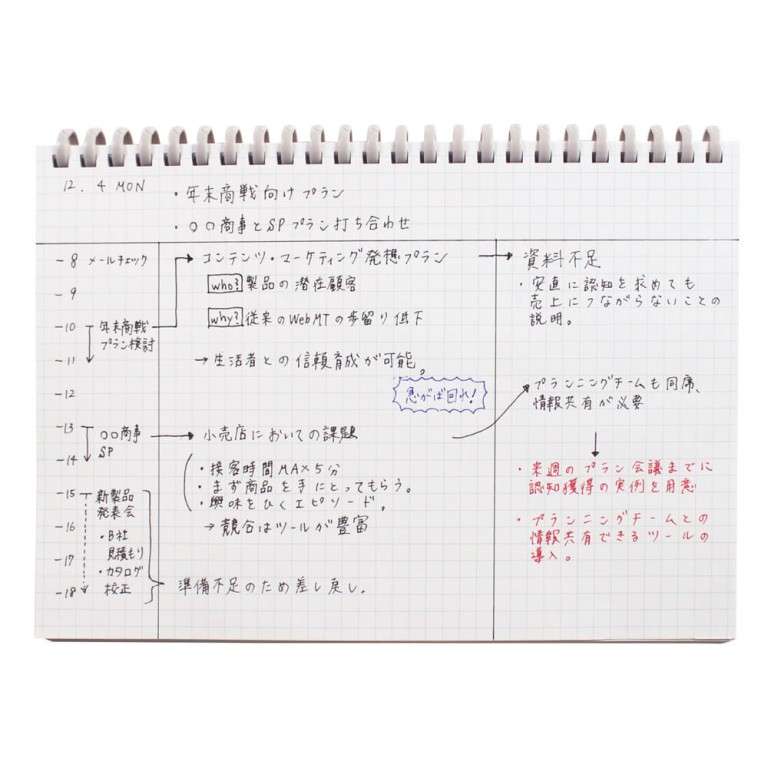 12. 4 MON
・年末商戦向けプラン
・〇〇商事とSPプラン打ち合わせ
8 メールチェック
9
10 年末商戦
プラン検討
11
12
13 〇〇商事
SP
14
15 新製品
発表会
16
・B社
見積もり
17
・カタログ
校正
18
→コンテンツ・マーケティング発想プラン
who? 製品の潜在顧客
why? 従来のWebMTの歩留り低下
→生活者との信頼育成が可能。
急がば回れ!
→小売店においての課題
・接客時間MAX5分
・まず商品を手にとってもらう。
・興味をひくエピソード。
→競合はツールが豊富
準備不足のため差し戻し。
→資料不足
・安直に認知を求めても
売上につながらないことの
説明。
プランニングチームも同席、
情報共有が必要
・来週のプラン会議までに
認知獲得の実例を用意
・プランニングチームとの
情報共有できるツールの
導入。